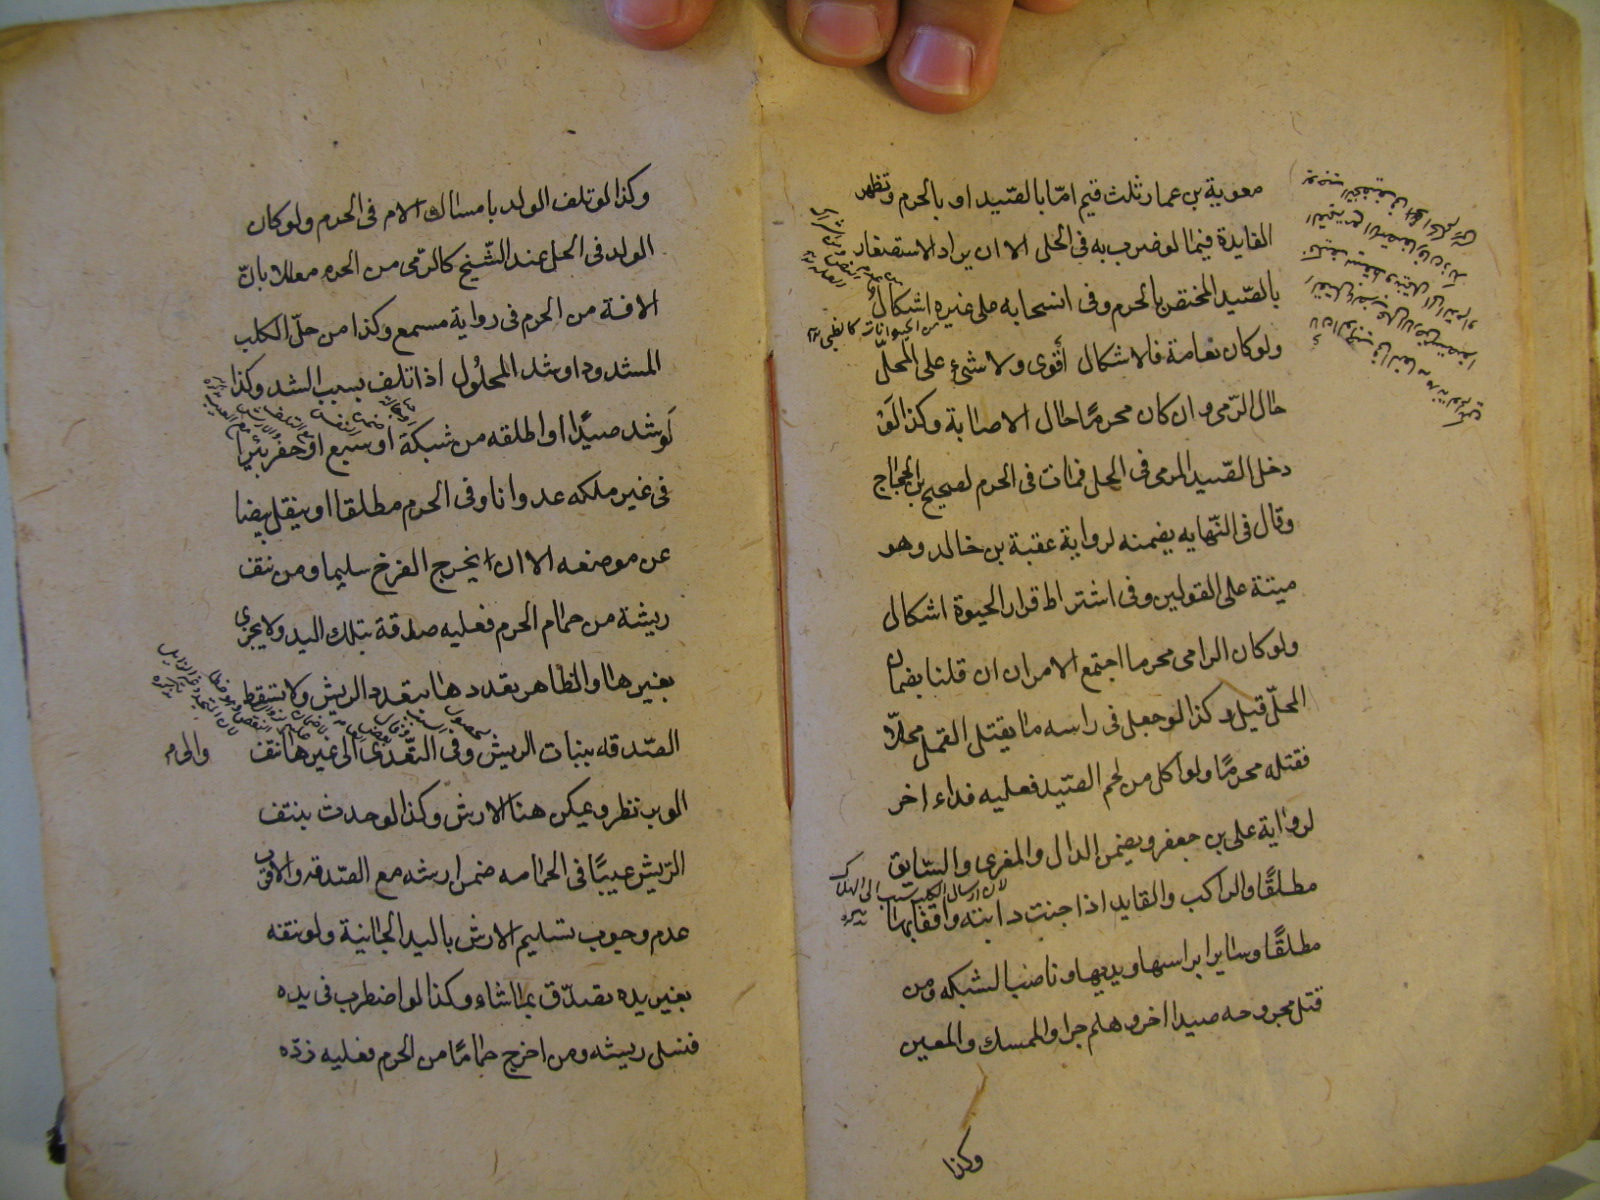 معوية بن عمار ثلث قيم امّا بالصّيد او بالحرم وتظهر
الفايدة فيما لو ضرب به فى الحل الا ان يراد الاستصغار
بالصّيد المختص بالحرم وفى انسحابه على غيره اشكالٌ
من الحيوانات كالظبى
ولو كان نعامة فالاشكال أقوى ولا شئ على المحلّ
حال الرّمى وان كان محرمًا حال الاصابة وكذا لَوْ
دخل الصّيد المرمى فى الحل فمات فى الحرم لصحيح بن الحجاج
وقال فى النّهايه يضمنه لرواية عقبة بن خالد وهو
ميتة على القولين وفى اشتراط قرار الحيوة اشكال
ولو كان الرامى محرما اجتمع الامران ان قلنا بضمان
المحلّ قيل وكذا لو جعل فى راسه ما يقتل القمل محلّا
فقتله محرمًا ولو اكل من لحم الصّيد فعليه فداء اخر
لرواية على بن جعفر ويضمن الدال والمغرى والسّايق
لان ارسال الكلب سبب الى الهلاك
مطلقًا والراكب والقايد اذا جنت دابته واقفا بها
مطلقًا وسايرا براسها ويديها وناصب الشبكه ومن
قتل مجروحه صيدا اخر وهلم جرا والممسك والمعين
وكذا
وكذا لو تلف الولد بامساك الام فى الحرم ولو كان
الولد فى الحل عند الشّيخ كالرّمى من الحرم معللا بانّ
الافة من الحرم فى رواية مسمع وكذا من حلّ الكلب
المشدود او شد المحلُول اذا تلف بسبب الشد وكذا
لَو شد صيدًا او اطلقه من شبكة او سبع او حفر بئرا
فى غير ملكه عدوانا وفى الحرم مطلقا او ينقل بيضا
عن موضعه الا ان يخرج الفرخ سليما ومن نتف
ريشة من حمام الحرم فعليه صدقة بتلك اليد ولا يجزي
بغيرها والظاهر تعددها بتعدد الريش ولا تسقط
الصّدقه بنبات الريش وفى التّعدى الى غيرها نتف
والحرم
الوبر نظر ويمكن هنا الارش وكذا لو حدث بنتف
الرّيش عيبًا فى الحمامه ضمن ارشه مع الصّدقه والاقرب
عدم وجوب تسليم الارش باليد الجانية ولو نتفه
بغير يده تصدّق بما شاء وكذا لو اضطرب فى يده
فنسل ريشه ومن اخرج حمامًا من الحرم فعليه ردّه